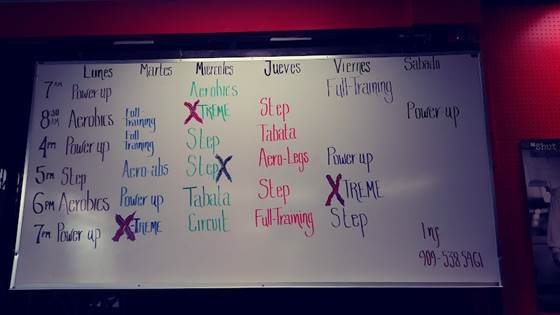 Lunes Martes Miercoles Jueves Viernes Sabado
7AM Power up Aerobics Full-Training
8:30AM Aerobics Full-Training XTREME Step Power up
4PM Power up Full Training Step Tabata
5PM Step Aero-abs Step X Aero-Legs Power up
6PM Aerobics Power up Tabata Step XTREME
7PM Power up X-TREME Circuit Full-Training Step
Inf
909-538 5961
Shut